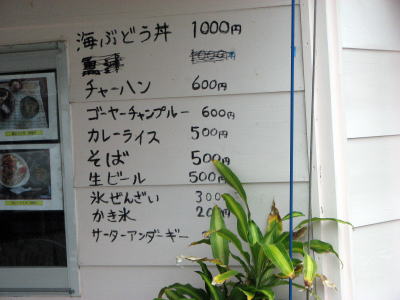 海ぶどう丼 1000円
チャーハン 600円
ゴーヤーチャンプルー 600円
カレーライス 500円
そば 500円
生ビール 500円
氷ぜんざい 300
かき氷 200円
サーターアンダーギー